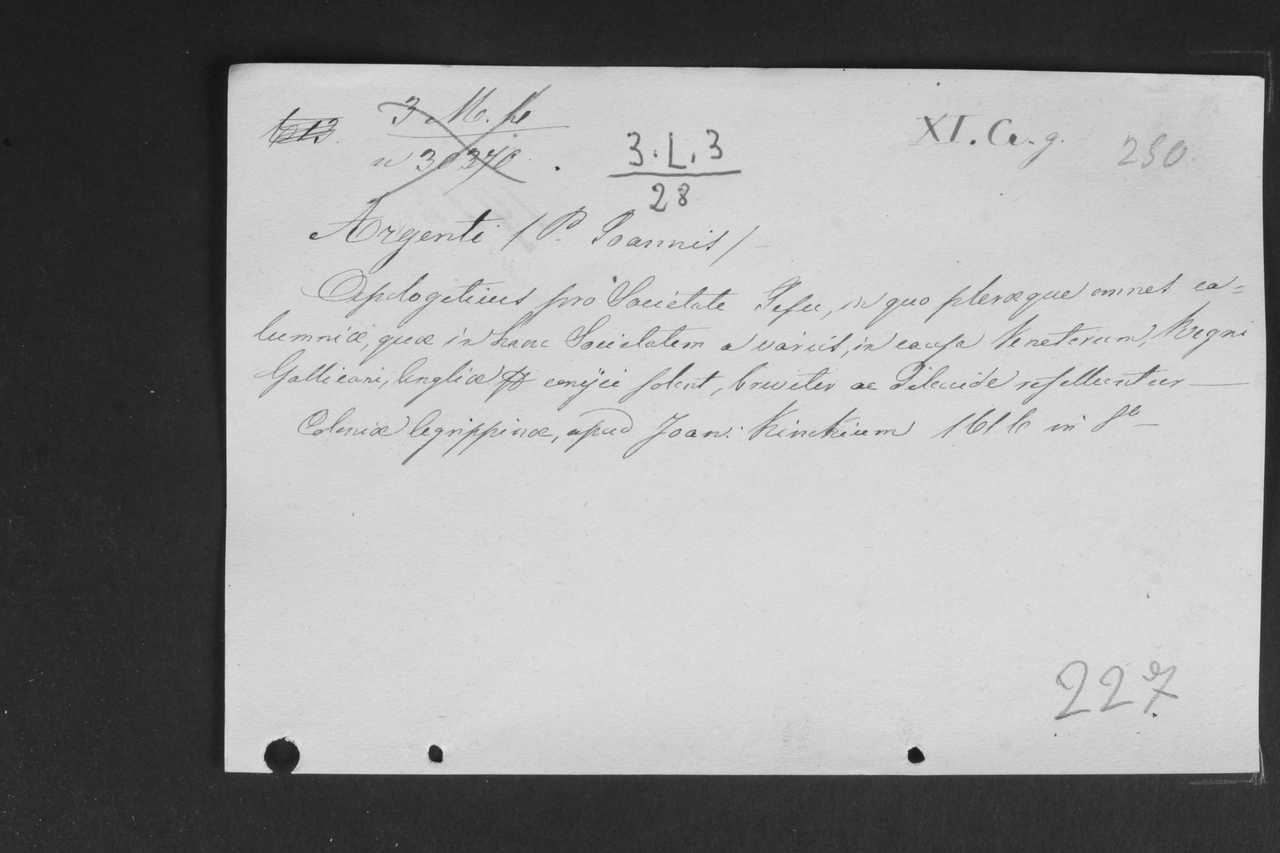 3 M. h
n 30370.
3.L.3
28
XI. Ca. g.
230
Argenti / P. Joannis /
Apologeticus pro Societate Jesu, in quo pleræque omnes ca=
lumniæ, quæ in hanc Societatem a variis, in causa Venetorum, Regni
Gallicani, Angliæ conijci solent, breviter ac dilucide refelluntur —
Coloniæ Agrippinæ, apud Joan: Kinckium 1616 in 8º —
227